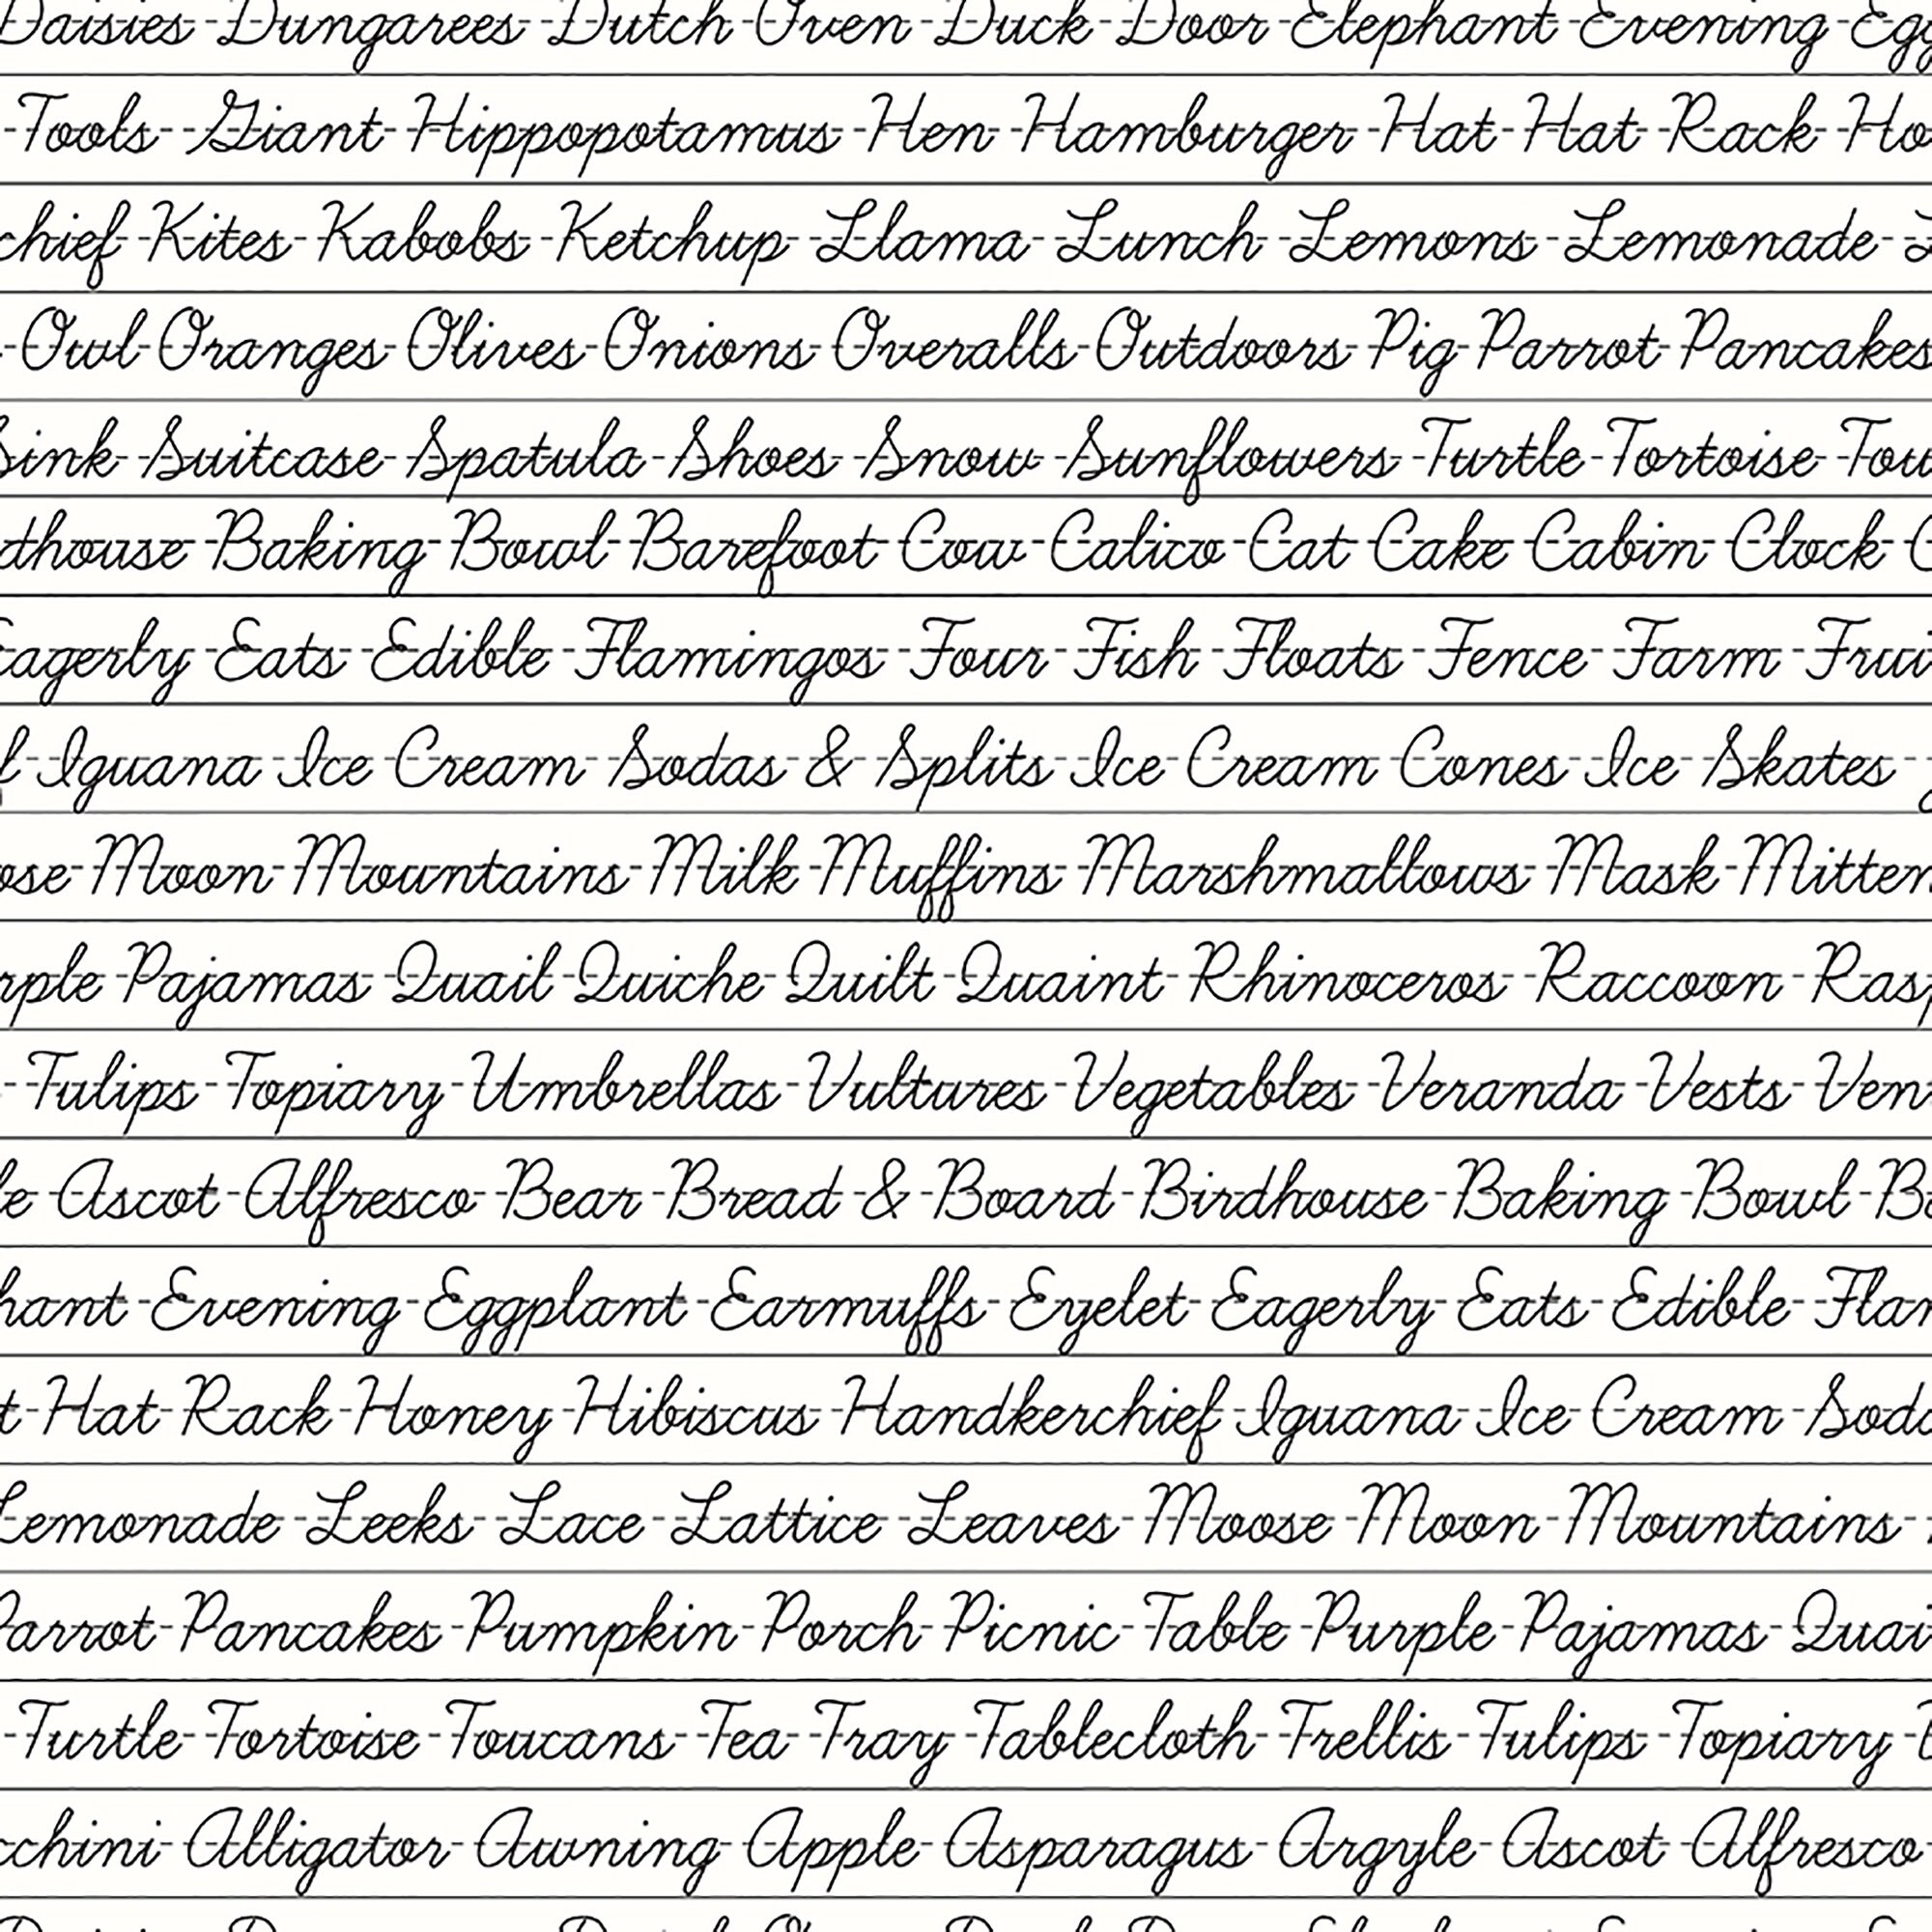 Daisies Dungarees Dutch Oven Duck Door Elephant Evening Egg
Tools Giant Hippopotamus Hen Hamburger Hat Hat Rack Ho
chief Kites Kabobs Ketchup Llama Lunch Lemons Lemonade
Owl Oranges Olives Onions Overalls Outdoors Pig Parrot Pancakes
Sink Suitcase Spatula Shoes Snow Sunflowers Turtle Tortoise Tou
dhouse Baking Bowl Barefoot Cow Calico Cat Cake Cabin Clock C
Eagerly Eats Edible Flamingos Four Fish Floats Fence Farm Frui
f Iguana Ice Cream Sodas & Splits Ice Cream Cones Ice Skates
ose Moon Mountains Milk Muffins Marshmallows Mask Mitten
rple Pajamas Quail Quiche Quilt Quaint Rhinoceros Raccoon Rasp
Tulips Topiary Umbrellas Vultures Vegetables Veranda Vests Ven
le Ascot Alfresco Bear Bread & Board Birdhouse Baking Bowl Ba
hant Evening Eggplant Earmuffs Eyelet Eagerly Eats Edible Flam
t Hat Rack Honey Hibiscus Handkerchief Iguana Ice Cream Soda
Lemonade Leeks Lace Lattice Leaves Moose Moon Mountains
Parrot Pancakes Pumpkin Porch Picnic Table Purple Pajamas Quai
Turtle Tortoise Toucans Tea Tray Tablecloth Trellis Tulips Topiary
cchini Alligator Awning Apple Asparagus Argyle Ascot Alfresco